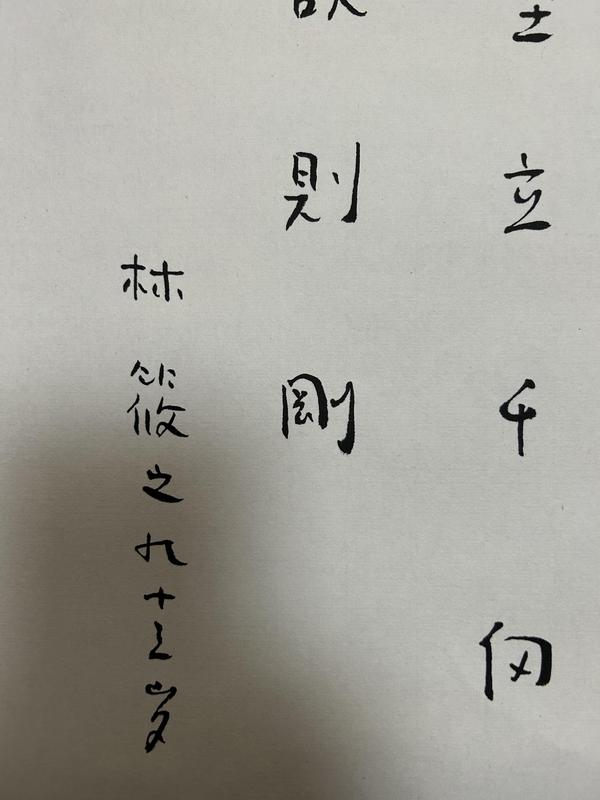 立千仞
則剛
林筱之九十三岁